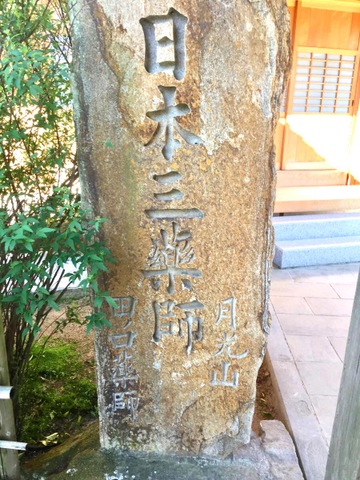 日本三薬師
月光山
田口薬師